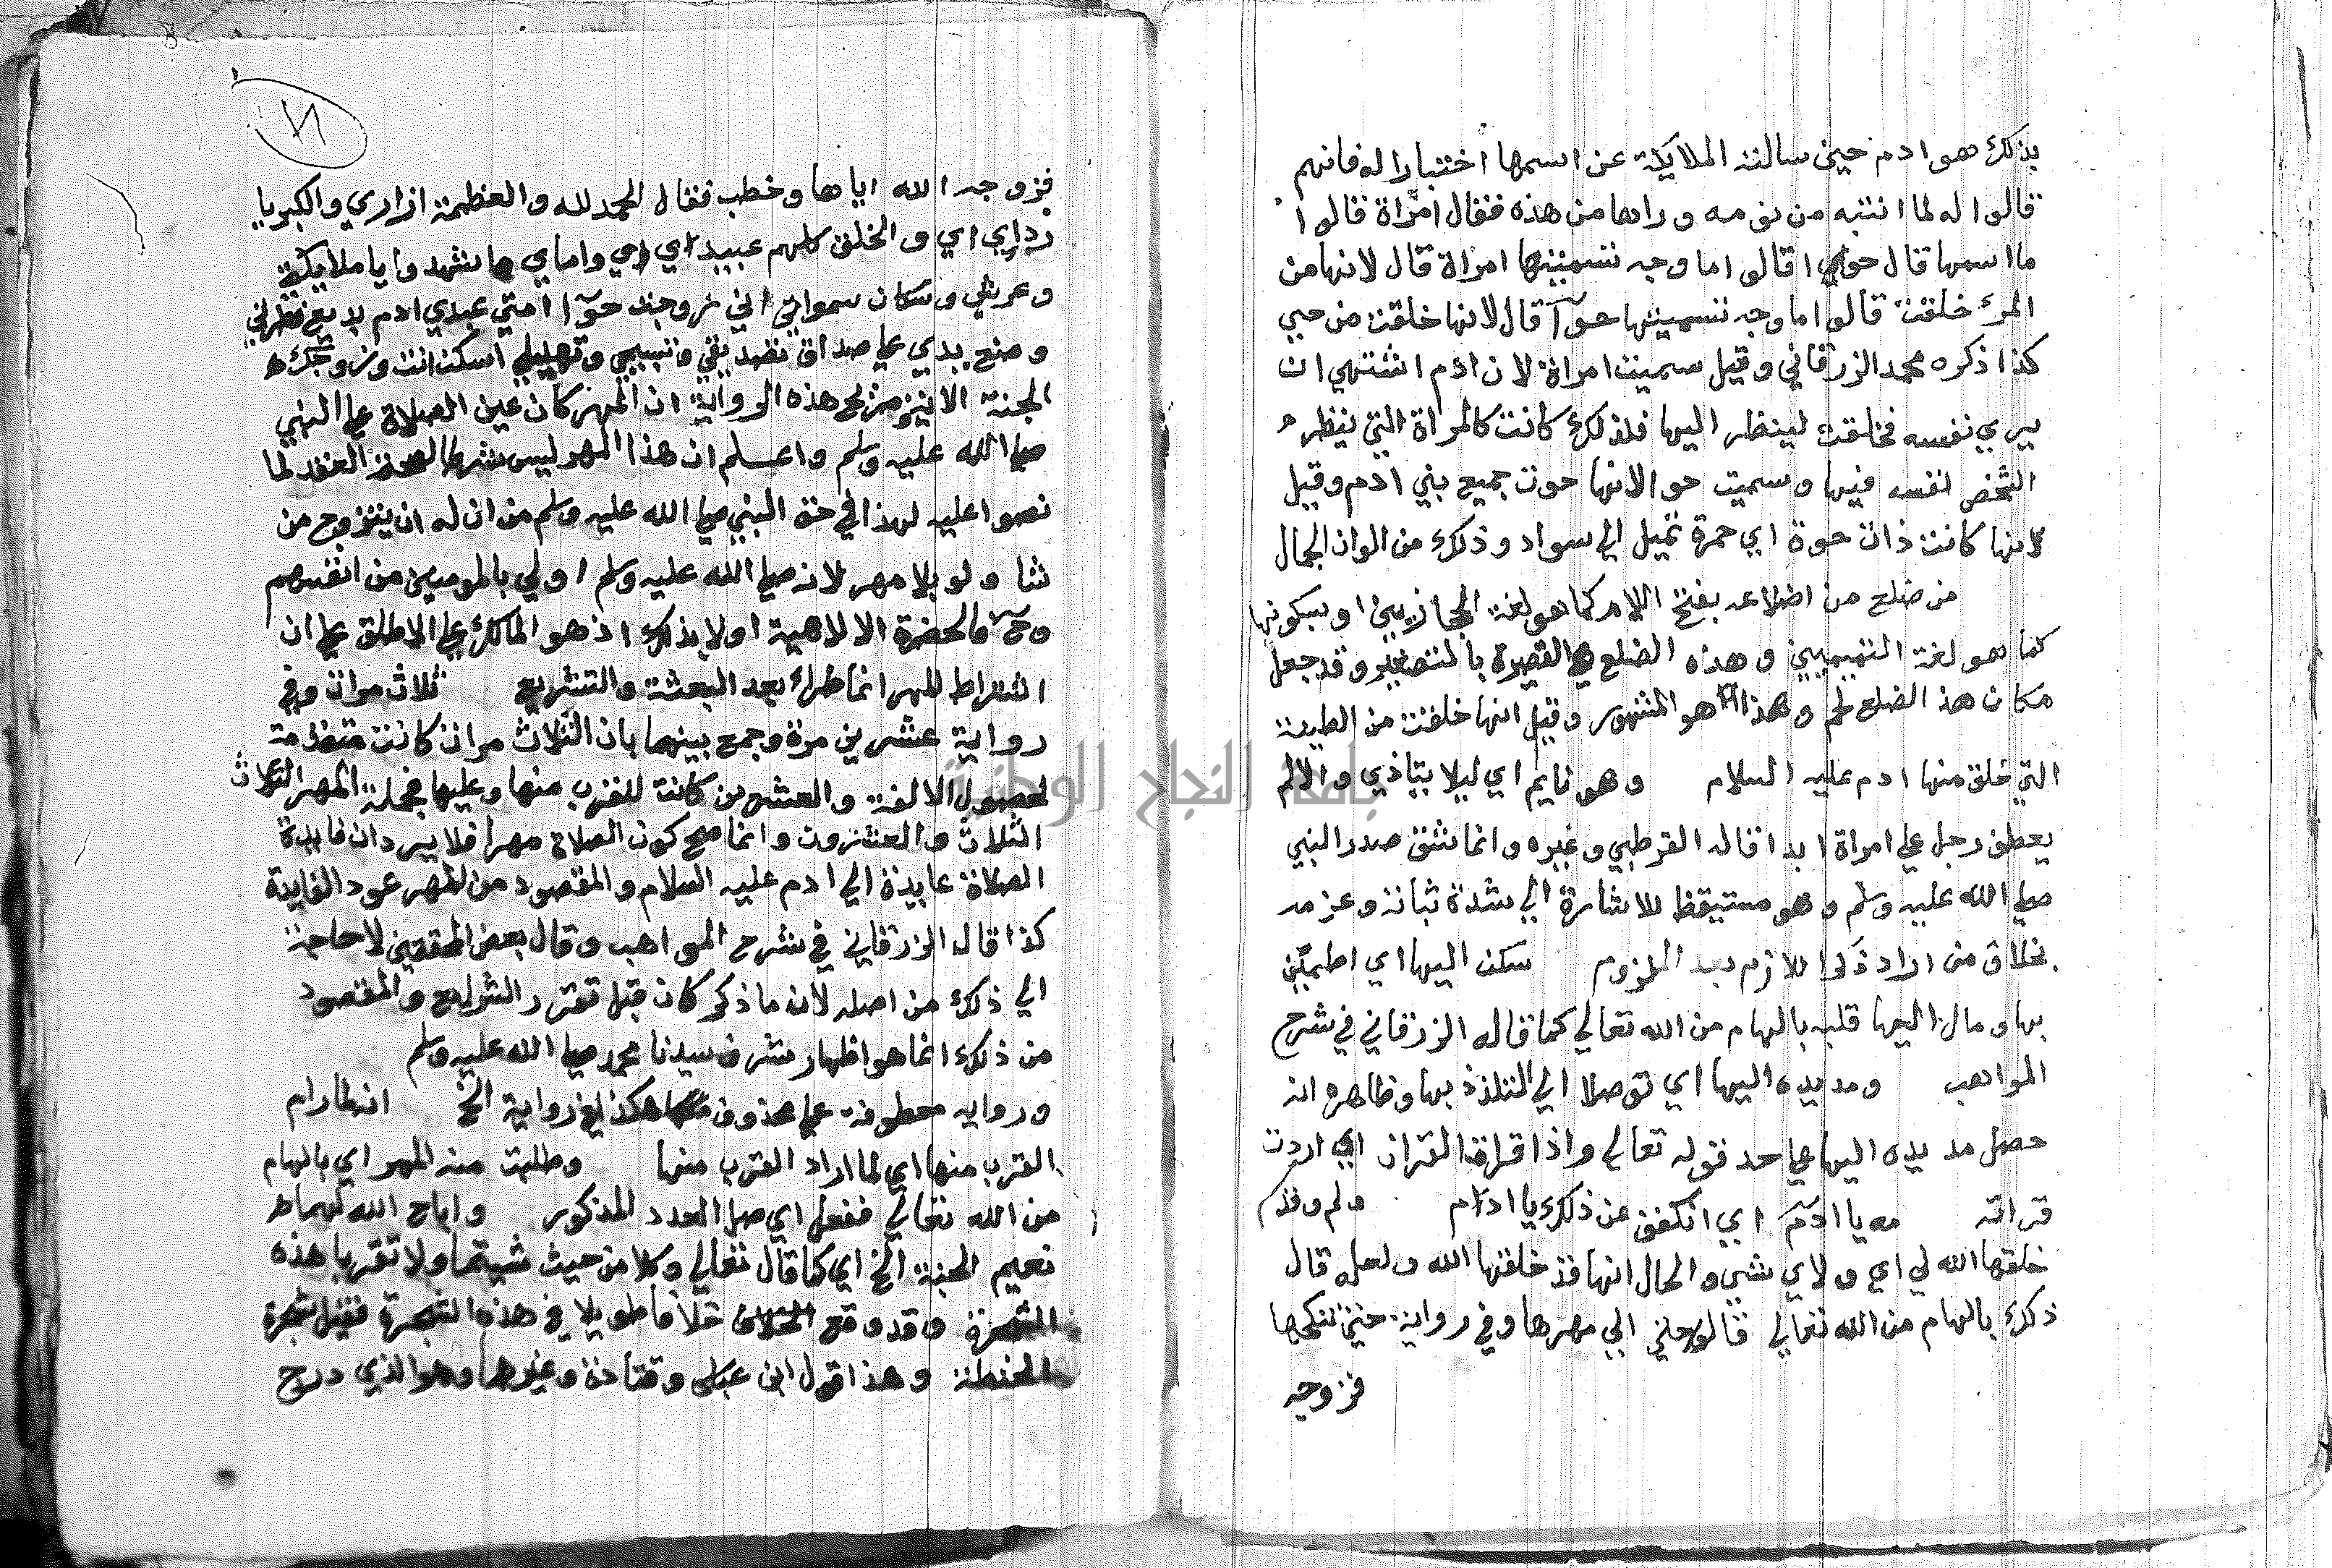 بذلك هو ادم حين سالته الملايكة عن اسمها اختبارا له فانهم
قالوا له لما انتبه من نومه وراها من هذه فقال امراة قالوا
ما اسمها قال حوي قالوا ما وجه تسميتها امراة قال لانها من
المرء خلقت قالوا ما وجه تسميتها حوآ قال لانها خلقت من حيي
كذا ذكره محمد الزرقاني وقيل سميت امراة لان ادم اشتهي ان
يري نفسه فخلقت لينظر اليها فلذلك كانت كالمراة التي ينظر
الشخص نفسه فيها وسميت حوا لانها حوت جميع بني ادم وقيل
لانها كانت ذات حوة اي حمرة تميل الي سواد وذلك من الوان الجمال
من ضلع من اضلاعه بفتح اللام كما هو لغة الحجازيين او بسكونها
كما هو لغة التميميين وهذه الضلع هي القصيرة بالتصغير وقد جعل
مكان هذ الضلع لحم وهذا هو المشهور وقيل انها خلقت من الطينة
التي خلق منها ادم عليه السلام وهو نايم اي ليلا يتاذي والا لم
يعطف رجل علي امراة ابدا قاله القرطبي وغيره وانما شق صدر النبي
صلي الله عليه وسلم وهو مستيقظ للاشارة الي شدة ثباته وعزمه
سكن اليها اي اطمين
بها ومال اليها قلبه بالهام من الله تعالي كما قاله الزرقاني في شرح
المواهب ومد يده اليها اي توصلا الي التلذذ بها وظاهره انه
حصل مد يده اليها علي حد قوله تعالي واذا قرات القران اي اردت
قراته مه يا ادم اي انكفف عن ذلك يا ادام ولم وقد
خلقها الله لي اي ولاي شي والحال انها قد خلقها الله ولعله قال
ذلك بالهام من الله تعالي قالوا حتي الي مهرها وفي رواية حتي تنكحها
فزوجه
فزوجه الله اياها وخطب فقال الحمد لله والعظمة ازاري والكبريا
رداي اي والخلق كلهم عبيدي اي واماي اشهدوا يا ملايكتي
وعرشي وسكان سمواتي اني زوجت حوآ امتي عبدي ادم بديع فطرتي
وصنع يدي علي صداق تصديقي وتسبيحي وتهليلي اسكن انت وزوجك
الجنة الا نيز هذه الرواية ان المهر كان عين الصلاة علي النبي
صلي الله عليه وسلم واعلم ان هذا المهر ليس شرطا لصحة العقد لما
نصوا عليه لهذا في حق النبي صلي الله عليه وسلم من ان له ان يتزوج من
شا ولو بلا مهر لانه صلي الله عليه وسلم اولي بالمومنين من انفسهم
وح فالحضرة الالاهية اولا بذلك اذ هو المالك علي الاطلاق علي ان
اشتراط المهر انما طراء بعد البعثة والتشريع ثلاث مرات وفي
رواية عشرين مرة وجمع بينهما بان الثلاث مرات كانت متقدمة
لحصول الالفة والعشرين كانت للقرب منها وعليها فجملة المهر الثلاث
الثلاث والعشرون وانما صح كون الصلاة مهرا فلا يرد ان فايدة
الصلاة عايدة الي ادم عليه السلام والمقصود من المهر عود الفايدة
كذا قال الزرقاني في شرح المواهب وقال بعض المحققين لا حاجة
الي ذلك من اصله لان ما ذكر كان قبل تقرر الشرايع والمقصود
من ذلك انما هو اظهار شرف سيدنا محمد صلي الله عليه وسلم
ورواية معطوفة علي محذوف هكذا في رواية الخ انه لما رام
القرب منها اي لما اراد القرب منها وطلبت منه المهر اي بالهام
من الله تعالي ففعل اي صلي العدد المذكور واباح الله لهما
نعيم الجنة الخ اي كما قال تعالي وكلا من حيث شيتما ولا تقربا هذه
الشجرة وقد وقع خلافا طويلا في هذه الشجرة فقيل شجرة
الحنطة وهذا قول ابن عباس وقتادة وغيرهما وهو الذي درج
جامعة النجاح الوطنية